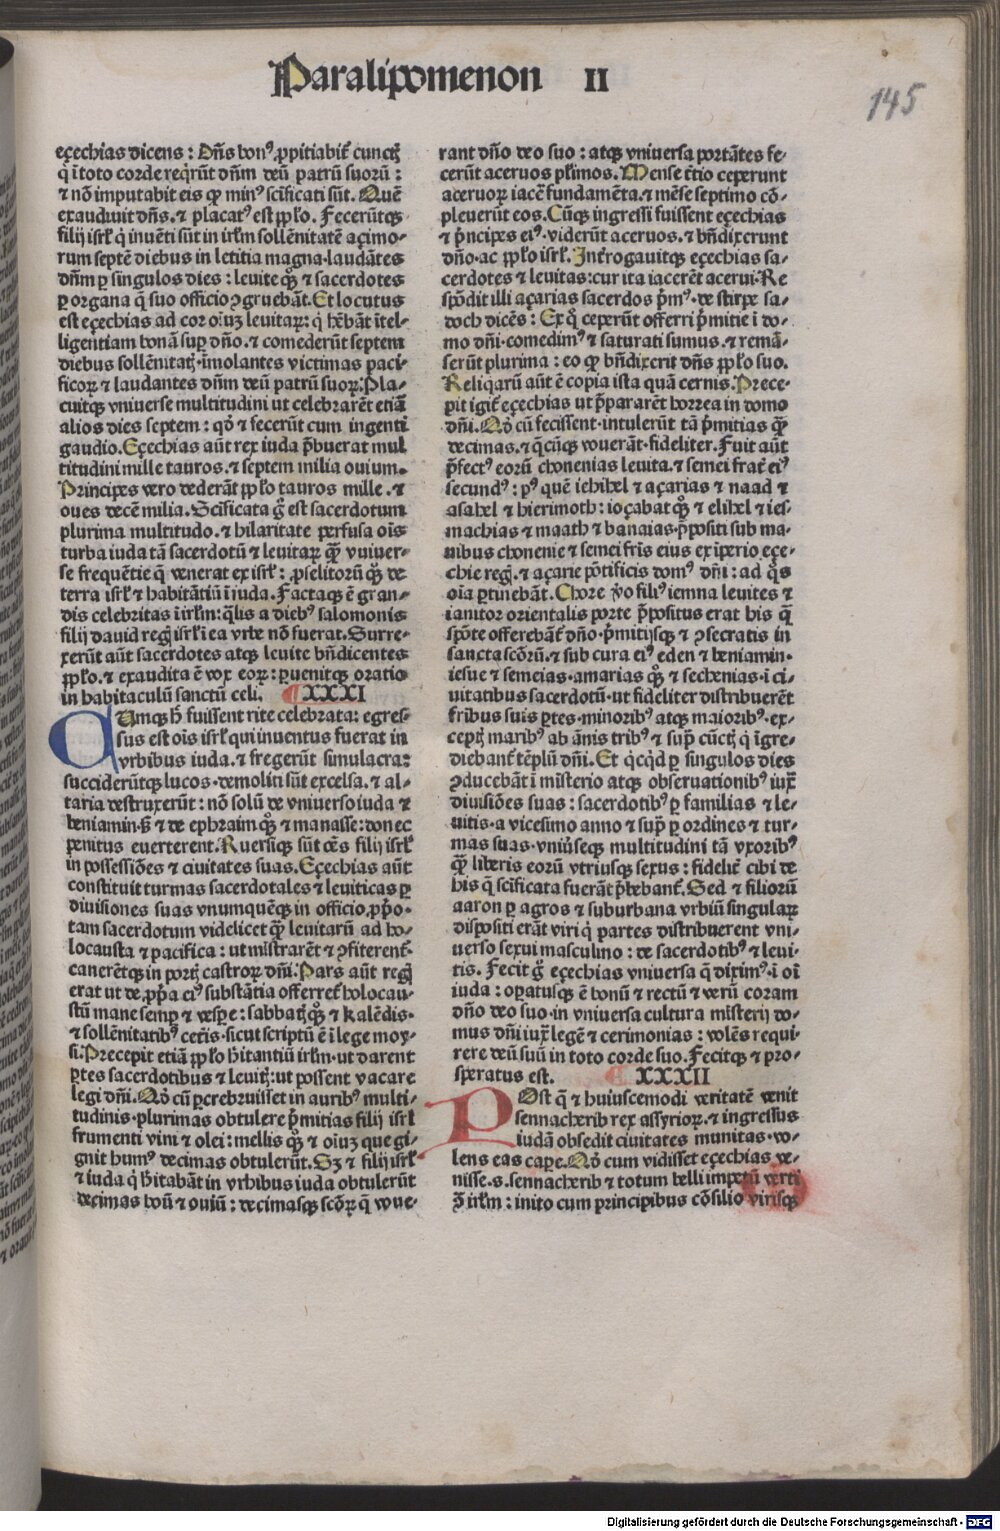 Paralipomenon II
145
eçechias dicens: Dñs bonꝰ ꝓpitiabit̃ cunctꝭ
q̃ ĩ toto corde reqͥrũt dñm deũ patrũ suorũ:
⁊ nõ imputabit eis ꝙ minꝰ sc̃ificati sũt. Quẽ
exaudiuit dñs. ⁊ placatꝰ est ppl̃o. Fecerũtqꝫ
filij isrl̃ qͥ inuẽti sũt in irl̃m sollẽnitatẽ açimo⸗
rum septẽ diebus in letitia magna·laudãtes
dñm ꝑ singulos dies: leuite qͦꝫ ⁊ sacerdotes
ꝑ organa q̃ suo officio ꝯgruebãt. Et locutus
est eçechias ad cor oĩuꝫ leuitaꝝ: qͥ hẽbãt ĩtel⸗
ligentiam bonã suꝑ dño. ⁊ comederũt septem
diebus sollẽnitatꝭ·ĩmolantes victimas paci⸗
ficoꝝ ⁊ laudantes dñm deũ patrũ suoꝝ. Pla⸗
cuitqꝫ vniuerse multitudini ut celebrarẽt etiã
alios dies septem: qõ ⁊ fecerũt cum ingenti
gaudio. Eçechias aũt rex iuda p̃buerat mul
titudini mille tauros. ⁊ septem milia ouium.
Principes vero dederãt ppl̃o tauros mille. ⁊
oues decẽ milia. Scĩficata g̊ est sacerdotum
plurima multitudo. ⁊ hilaritate perfusa oĩs
turba iuda tã sacerdotũ ⁊ leuitaꝝ qꝫ̃ vniuer⸗
se frequẽtie q̃ venerat ex isrl̃: ꝓselitorũ qͦꝫ de
terra isrl̃ ⁊ habitãtiũ ĩ iuda. Factaqꝫ ẽ gran⸗
dis celebritas ĩ irl̃m: q̃lis a diebꝰ salomonis
filij dauid regꝭ isrl̃ ĩ ea vrbe nõ fuerat. Surre⸗
xerũt aũt sacerdotes atqꝫ leuite bñdicentes
ppl̃o. ⁊ exaudita ẽ vox eoꝝ: ꝑuenitqꝫ oratio
in habitaculũ sanctũ celi. ¶ XXXI
CUmqꝫ h̃ fuissent rite celebrata: egres⸗
sus est oĩs isrl̃ qui inuentus fuerat in
vrbibus iuda. ⁊ fregerũt simulacra:
succiderũtqꝫ lucos·demoliti sũt excelsa. ⁊ al⸗
taria destruxerũt: nõ solũ de vniuerso iuda ⁊
beniamin·s̃ ⁊ de ephraim qͦꝫ ⁊ manasse: donec
penitus euerterent. Ruersiqꝫ sũt oẽs filij isrl̃
in possessiões ⁊ ciuitates suas. Eçechias aũt
constituit turmas sacerdotales ⁊ leuiticas ꝑ
diuisiones suas vnumquẽqꝫ in officio ꝓp̃o⸗
tam sacerdotum videlicet qꝫ̃ leuitarũ ad ho⸗
locausta ⁊ pacifica: ut mĩstrarẽt ⁊ ꝯfiterent̃·
canerẽtqꝫ in portꝭ castroꝝ dñi. Pars aũt regꝭ
erat ut de ꝓp̃a eiꝰ substãtia offerret̃ holocau⸗
stũ mane semꝑ ⁊ vesꝑe: sabbatꝭ qͦꝫ ⁊ kalẽdis·
⁊ sollẽnitatibꝰ cet̃is·sicut scriptũ ẽ ĩ lege moy⸗
si. Precepit etiã ppl̃o h̃itantiũ irl̃m·ut darent
ꝑtes sacerdotibus ⁊ leuitꝭ: ut possent vacare
legi dñi. Qõ cũ ꝑcrebruisset in auribꝰ multi⸗
tudinis·plurimas obtulere p̃mitias filij isrl̃
frumenti vini ⁊ olei: mellis qͦꝫ ⁊ oĩuꝫ que gi⸗
gnit humꝰ decimas obtulerũt. Sꝫ ⁊ filij isrl̃
⁊ iuda qͥ h̃itabãt in vrbibus iuda obtulerũt
decimas boũ ⁊ ouiũ: decimasqꝫ scõꝝ q̃ voue⸗
rant dño deo suo: atqꝫ vniuersa portãtes fe⸗
cerũt aceruos pl̃imos. Mense t̃tio ceperunt
aceruoꝝ iacẽ fundamẽta. ⁊ mẽse septimo cõ⸗
pleuerũt eos. Cũqꝫ ingressi fuissent eçechias
⁊ p̃ncipes eiꝰ·viderũt aceruos. ⁊ bñdixerunt
dño·ac ppl̃o isrl̃. Int̃rogauitqꝫ eçechias sa⸗
cerdotes ⁊ leuitas: cur ita iacerẽt acerui. Re
spõdit illi açarias sacerdos p̃mꝰ·de stirpe sa⸗
doch dicẽs: Ex qͦ ceperũt offerri p̃mitie ĩ do⸗
mo dñi·comedimꝰ ⁊ saturati sumus. ⁊ remã⸗
serũt plurima: eo ꝙ bñdixerit dñs ppl̃o suo.
Reliqͥarũ aũt ẽ copia ista quã cernis. Prece⸗
pit igit̃ eçechias ut p̃pararẽt horrea in domo
dñi. Qõ cũ fecissent·intulerũt tã p̃mitias qꝫ̃
decimas. ⁊ q̃cũqꝫ vouerãt·fideliter. Fuit aũt
p̃fectꝰ eorũ chonenias leuita. ⁊ semei frat̃ eiꝰ
secundꝰ: pꝰ quẽ iehihel ⁊ açarias ⁊ naad ⁊
asahel ⁊ hierimoth: ioçabat qͦꝫ ⁊ elihel ⁊ ies⸗
machias ⁊ maath ⁊ banaias·p̃positi sub ma⸗
nibus chonenie ⁊ semei fr̃is eius ex ĩperio eçe⸗
chie regꝭ. ⁊ açarie põtificis domꝰ dñi: ad qͦs
oĩa ꝑtinebãt. Chore ṽo filiꝰ iemna leuites ⁊
ianitor orientalis porte p̃positus erat his q̃
spõte offerebãt̃ dño·p̃mitijsqꝫ ⁊ ꝯsecratis in
sancta scõrũ. ⁊ sub cura eiꝰ eden ⁊ beniamin·
iesue ⁊ semeias·amarias qͦꝫ ⁊ sechenias·ĩ ci⸗
uitatibus sacerdotũ·ut fideliter distribuerẽt
fribus suis ꝑtes·minoribꝰ atqꝫ maioribꝰ·ex⸗
ceptꝭ maribꝰ ab ãnis tribꝰ ⁊ sup̃ cũctꝭ qͥ ĩgre⸗
diebant̃ tẽplũ dñi. Et qͥcqͥd ꝑ singulos dies
ꝯducebãt ĩ misterio atqꝫ obseruationibꝰ iux̃
diuisiões suas: sacerdotibꝰ ꝑ familias ⁊ le⸗
uitis·a vicesimo anno ⁊ sup̃ ꝑ ordines ⁊ tur⸗
mas suas·vniũseqꝫ multitudini tã vxoribꝰ
qꝫ̃ liberis eorũ vtriusqꝫ sexus: fidelit̃ cibi de
his q̃ scĩficata fuerãt p̃bebant̃. Sed ⁊ filiorũ
aaron ꝑ agros ⁊ suburbana vrbiũ singulaꝝ
dispositi erãt viri qͥ partes distribuerent vni⸗
uerso sexui masculino: de sacerdotibꝰ ⁊ leui⸗
tis. Fecit g̊ eçechias vniuersa q̃ diximꝰ·ĩ oĩ
iuda: oꝑatusqꝫ ẽ bonũ ⁊ rectũ ⁊ verũ coram
dño deo suo·in vniuersa cultura misterij do⸗
mus dñi iux̃ legẽ ⁊ cerimonias: volẽs requi⸗
rere deũ suũ in toto corde suo. Fecitqꝫ ⁊ pro⸗
speratus est. ¶ XXXII
POst q̃ ⁊ huiuscemodi veritatẽ venit
sennacherib rex assyrioꝝ. ⁊ ingressus
iudã obsedit ciuitates munitas·vo⸗
lens eas caꝑe. Qõ cum vidisset eçechias ve⸗
nisse·s·sennacherib ⁊ totum belli impetũ verti
ↄ̃ irl̃m: inito cum principibus cõsilio virisqꝫ
Digitalisierung gefördert durch die Deutsche Forschungsgemeinschaft - DFG